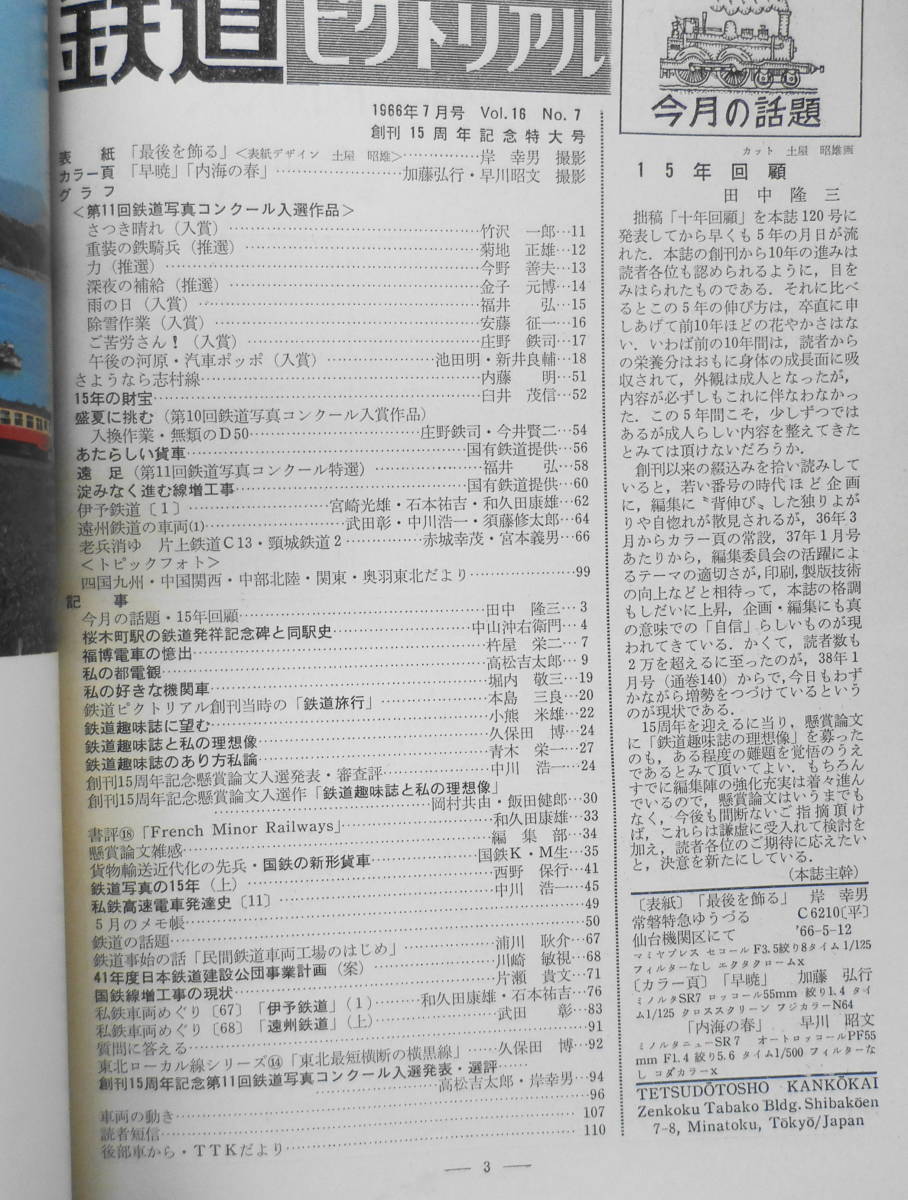 鉄道ピクトリアル
1966年7月号 Vol.16 No.7
創刊15周年記念特大号
表紙 「最後を飾る」<表紙デザイン 土屋 昭雄>……………岸 幸男 撮影
カラー頁 「早暁」「内海の春」……………加藤弘行・早川昭文 撮影
グラフ
<第11回鉄道写真コンクール入選作品>
さつき晴れ(入賞)……………竹沢 一郎…11
重装の鉄騎兵(推選)……………菊地 正雄…12
力(推選)……………今野 善夫…13
深夜の補給(推選)……………金子 元博…14
雨の日(入賞)……………福井 弘…15
除雪作業(入賞)……………安藤 征一…16
ご苦労さん!(入賞)……………庄野 鉄司…17
午後の河原・汽車ポッポ(入賞)……………池田明・新井良輔…18
さようなら志村線……………内藤 明…51
15年の財宝……………臼井 茂信…52
盛夏に挑む(第10回鉄道写真コンクール入賞作品)
入換作業・無類のD50……………庄野鉄司・今井賢二…54
あたらしい貨車……………国有鉄道提供…56
遠足(第11回鉄道写真コンクール特選)……………福井 弘…58
淀みなく進む線増工事……………国有鉄道提供…60
伊予鉄道〔1〕……………宮崎光雄・石本祐吉・和久田康雄…62
遠州鉄道の車両(1)……………武田彰・中川浩一・須藤修太郎…64
老兵消ゆ 片上鉄道C13・頸城鉄道2……………赤城幸茂・宮本義男…66
<トピックフォト>
四国九州・中国関西・中部北陸・関東・奥羽東北だより……………99
記事
今月の話題・15年回顧……………田中 隆三…3
桜木町駅の鉄道発祥記念碑と同駅史……………中山沖右衛門…4
福博電車の憶出……………杵屋 栄二…7
私の都電観……………高松吉太郎…9
私の好きな機関車……………堀内 敬三…19
鉄道ピクトリアル創刊当時の「鉄道旅行」……………本島 三良…20
鉄道趣味誌に望む……………小熊 米雄…22
鉄道趣味誌と私の理想像……………久保田 博…24
鉄道趣味誌のあり方私論……………青木 栄一…27
創刊15周年記念懸賞論文入選発表・審査評……………中川 浩一…24
創刊15周年記念懸賞論文入選作「鉄道趣味誌と私の理想像」
……………岡村共由・飯田健郎…30
書評⑱「French Minor Railways」……………和久田康雄…33
懸賞論文雑感……………編集部…34
貨物輸送近代化の先兵・国鉄の新形貨車……………国鉄K・M生…35
鉄道写真の15年(上)……………西野 保行…41
私鉄高速電車発達史〔11〕……………中川 浩一…45
5月のメモ帳……………49
鉄道の話題……………50
鉄道事始の話「民間鉄道車両工場のはじめ」……………浦川 耿介…67
41年度日本鉄道建設公団事業計画(案)……………川崎 敏視…68
国鉄線増工事の現状……………片瀬 貴文…71
私鉄車両めぐり〔67〕「伊予鉄道」(1)……………和久田康雄・石本祐吉…76
私鉄車両めぐり〔68〕「遠州鉄道」(上)……………武田 彰…83
質問に答える……………91
東北ローカル線シリーズ⑭「東北最短横断の横黒線」……………久保田 博…92
創刊15周年記念第11回鉄道写真コンクール入選発表・選評……………
高松吉太郎・岸幸男…94
車両の動き……………96
読者短信……………107
後部車から・TTKだより……………110
今月の話題
カット 土屋 昭雄画
15年回顧
田中隆三
拙稿「十年回顧」を本誌120号に
発表してから早くも5年の月日が流
れた.本誌の創刊から10年の進みは
読者各位も認められるように,目を
みはられたものである.それに比べ
るとこの5年の伸び方は,卒直に申
しあげて前10年ほどの花やかさはな
い.いわば前の10年間は,読者から
の栄養分はおもに身体の成長面に吸
収されて,外観は成人となったが,
内容が必ずしもこれに伴なわなかっ
た.この5年間こそ,少しずつでは
あるが成人らしい内容を整えてきた
とみては頂けないだろうか.
創刊以来の綴込みを拾い読みして
いると,若い番号の時代ほど企画
に,編集に〝背伸び〟した独りよが
りや自惚れが散見されるが,36年3
月からカラー頁の常設,37年1月号
あたりから,編集委員会の活躍によ
るテーマの適切さが,印刷,製版技術
の向上などと相待って,本誌の格調
もしだいに上昇,企画・編集にも真
の意味での「自信」らしいものが現
われてきている.かくて,読者数も
2万を超えるに至ったのが,38年1
月号(通巻140)からで,今日もわず
かながら増勢をつづけているという
のが現状である.
15周年を迎えるに当り,懸賞論文
に「鉄道趣味誌の理想像」を募った
のも,ある程度の難題を覚悟のうえ
であるとみて頂いてよい.もちろん
すでに編集陣の強化充実は着々進ん
でいるので,懸賞論文はいうまでも
なく,今後も間断ないご指摘頂け
ば,これらは謙虚に受入れて検討を
加え,読者各位のご期待に応えたい
と,決意を新たにしている.
(本誌主幹)
〔表紙〕「最後を飾る」 岸 幸男
常磐特急ゆうづる C6210〔平〕
仙台機関区にて '66-5-12
マミヤプレス セコール F3.5絞り8タイム1/125
フィルターなし エクタクロームX
〔カラー頁〕「早暁」 加藤 弘行
ミノルタSR7 ロッコール55mm 絞り1.4 タイ
ム1/125 クロススクリーン フジカラーN64
「内海の春」 早川 昭文
ミノルタニューSR7 オートロッコールPF55
mm F1.4 絞り5.6 タイム1/500 フィルターな
し コダカラーX
TETSUDŌTOSHO KANKŌKAI
Zenkoku Tabako Bldg. Shibakōen
7-8, Minatoku, Tōkyō/Japan
— 3 —